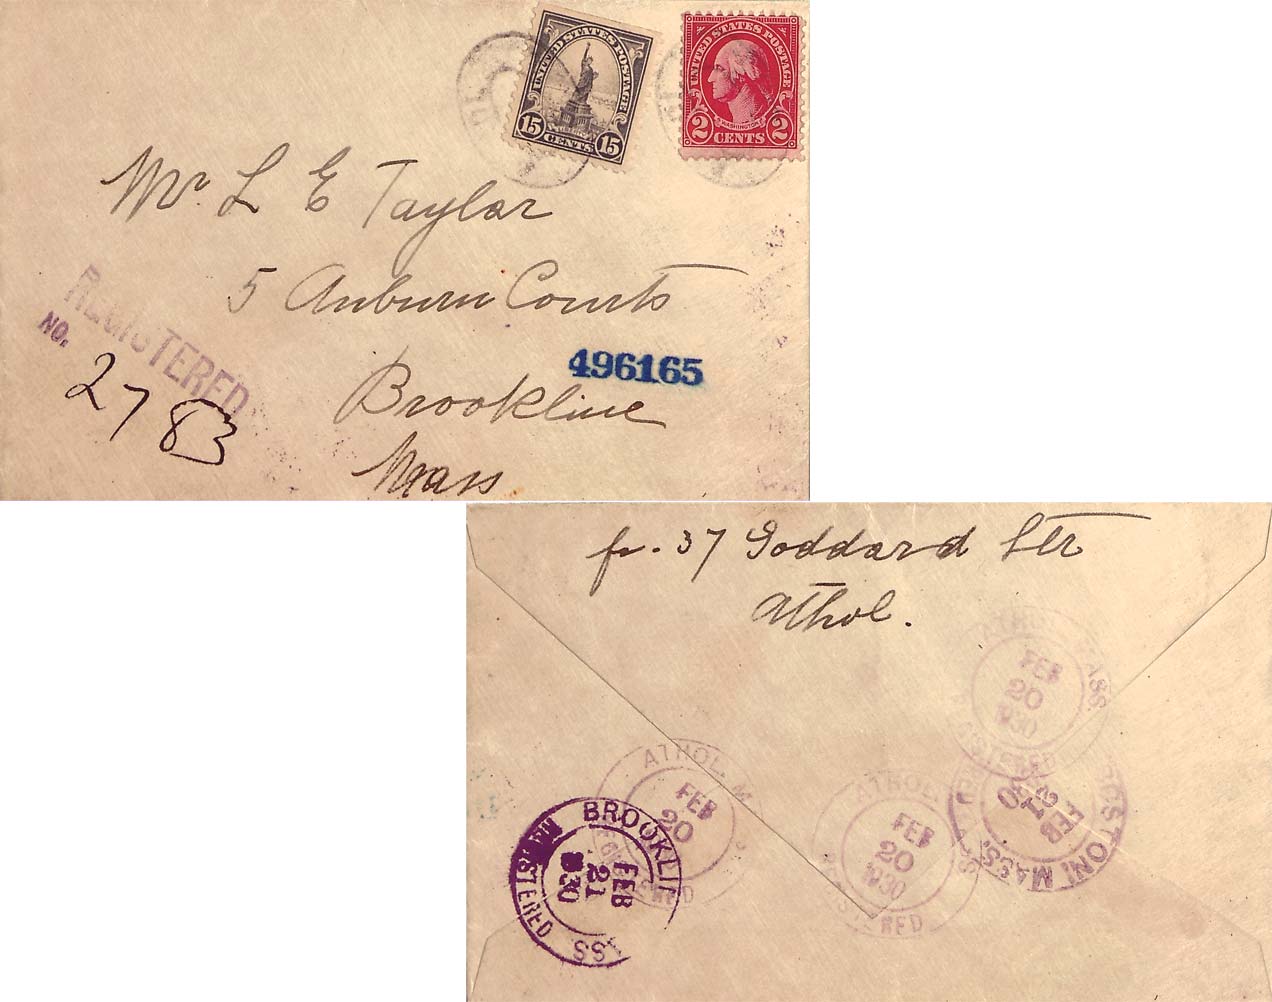 UNITED STATES POSTAGE
LIBERTY
15 CENTS 15
UNITED STATES POSTAGE
WASHINGTON
2 CENTS 2
Mr. L E Taylor
5 Auburn Courts
Brookline
Mass
REGISTERED
NO.
2783
496165
fr. 37 Goddard Str
Athol.
ATHOL MASS
FEB
20
1930
REGISTERED
ATHOL, M
FEB
20
ATHOL
FEB
20
1930
BROOKLI
FEB
21
1930
MASS.
FEB
21